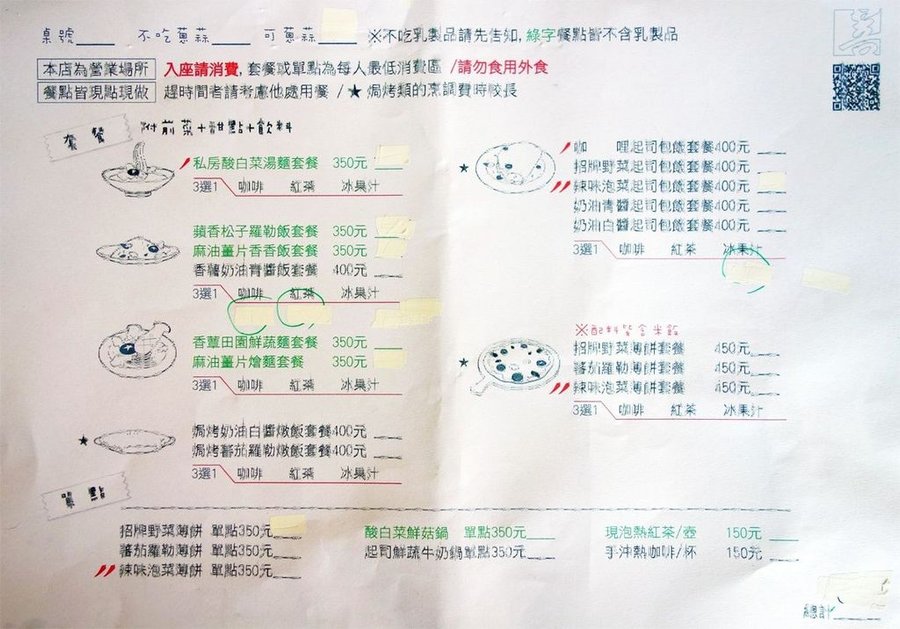 桌號____ 不吃蔥蒜____ 可蔥蒜____ ※不吃乳製品請先告知, 綠字餐點皆不含乳製品
本店為營業場所 入座請消費, 套餐或單點為每人最低消費區 /請勿食用外食
餐點皆現點現做 趕時間者請考慮他處用餐 / ★ 焗烤類的烹調費時較長
套餐 附前菜+甜點+飲料
私房酸白菜湯麵套餐 350元
3選1 咖啡 紅茶 冰果汁
蘋香松子羅勒飯套餐 350元
麻油薑片香香飯套餐 350元
香蘭奶油青醬飯套餐 400元____
3選1 咖啡 紅茶 冰果汁
香草田園鮮蔬麵套餐 350元
麻油薑片燴麵套餐 350元
3選1 咖啡 紅茶 冰果汁
★ 焗烤奶油白醬燉飯套餐400元____
焗烤蕃茄羅勒燉飯套餐400元____
3選1 咖啡 紅茶 冰果汁
咖 哩起司包飯套餐400元____
★ 招牌野菜起司包飯套餐400元____
辣味泡菜起司包飯套餐400元
奶油青醬起司包飯套餐400元____
奶油白醬起司包飯套餐400元____
3選1 咖啡 紅茶 冰果汁
※配料皆含米飯
招牌野菜薄餅套餐 450元____
★ 蕃茄羅勒薄餅套餐 450元____
辣味泡菜薄餅套餐 450元____
3選1 咖啡 紅茶 冰果汁
單點
招牌野菜薄餅 單點350元____
蕃茄羅勒薄餅 單點350元____
辣味泡菜薄餅 單點350元____
酸白菜鮮菇鍋 單點350元____
起司鮮蔬牛奶鍋單點350元____
現泡熱紅茶/壺 150元____
手沖熱咖啡/杯 150元____
總計______